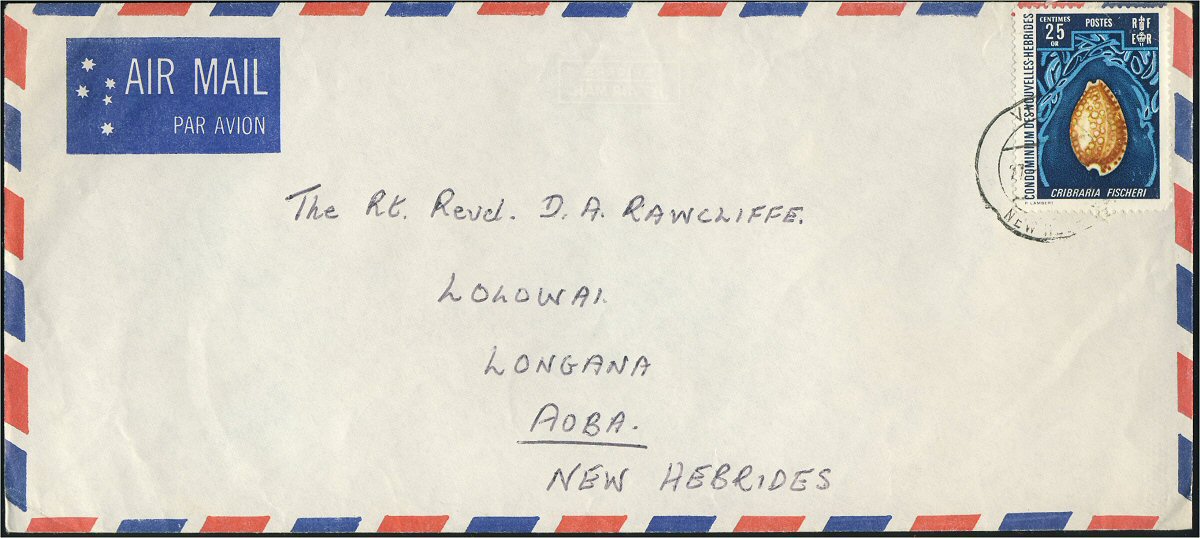 AIR MAIL
PAR AVION
CENTIMES
25
OR
POSTES
R F
E R
CONDOMINIUM DES NOUVELLES-HEBRIDES
CRIBRARIA FISCHERI
P. LAMBERT
NEW
The Rt. Revd. D. A. RAWCLIFFE.
LOLOWAI.
LONGANA
AOBA.
NEW HEBRIDES